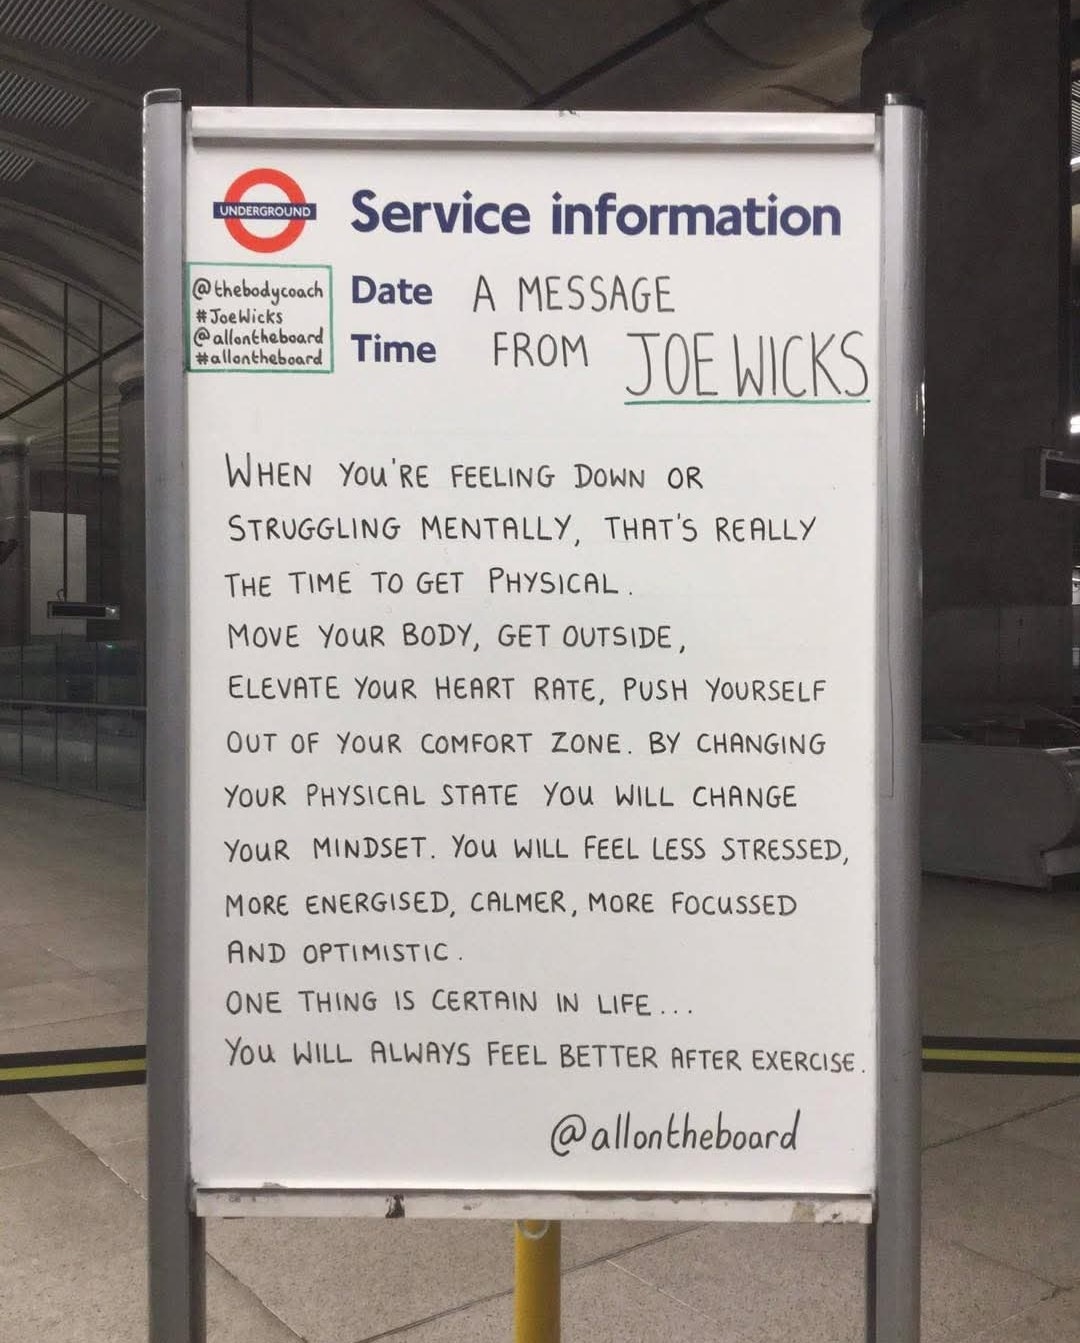 UNDERGROUND
Service information
@thebodycoach
#JoeWicks
@allontheboard
#allontheboard
Date A MESSAGE
Time FROM JOE WICKS
WHEN YOU'RE FEELING DOWN OR
STRUGGLING MENTALLY, THAT'S REALLY
THE TIME TO GET PHYSICAL.
MOVE YOUR BODY, GET OUTSIDE,
ELEVATE YOUR HEART RATE, PUSH YOURSELF
OUT OF YOUR COMFORT ZONE. BY CHANGING
YOUR PHYSICAL STATE YOU WILL CHANGE
YOUR MINDSET. YOU WILL FEEL LESS STRESSED,
MORE ENERGISED, CALMER, MORE FOCUSSED
AND OPTIMISTIC.
ONE THING IS CERTAIN IN LIFE...
YOU WILL ALWAYS FEEL BETTER AFTER EXERCISE.
@allontheboard